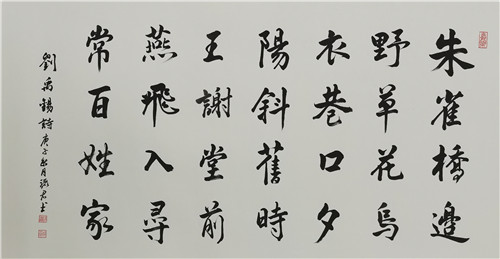 朱雀橋邊
野草花烏
衣巷口夕
陽斜舊時
王謝堂前
燕飛入尋
常百姓家
劉禹錫詩庚子年月